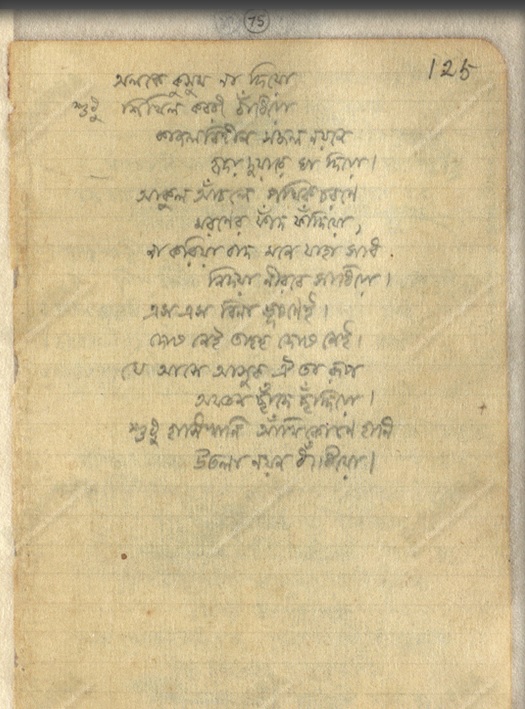 75
125
অলকে কুসুম না দিয়ো
শুধু শিথিল কবরী বাঁধিয়ো
কাজলবিহীন সজল নয়নে
হৃদয়দুয়ারে ঘা দিয়ো।
আকুল আঁচলে পথিকচরণে
মরণের ফাঁদ ফাঁদিয়ো,
না করিয়া বাদ মনে যাহা সাধ
নিদয়া নীরবে সাধিয়ো।
এস এস বিনা ভূষণেই।
দোষ নেই তাহে দোষ নেই।
যে আসে আসুক ঐ তব রূপ
অযতন ছাঁদে ছাঁদিয়ো।
শুধু হাসিখানি আঁখিকোণে হানি
উতলা নয়ন ধাঁধিয়ো।